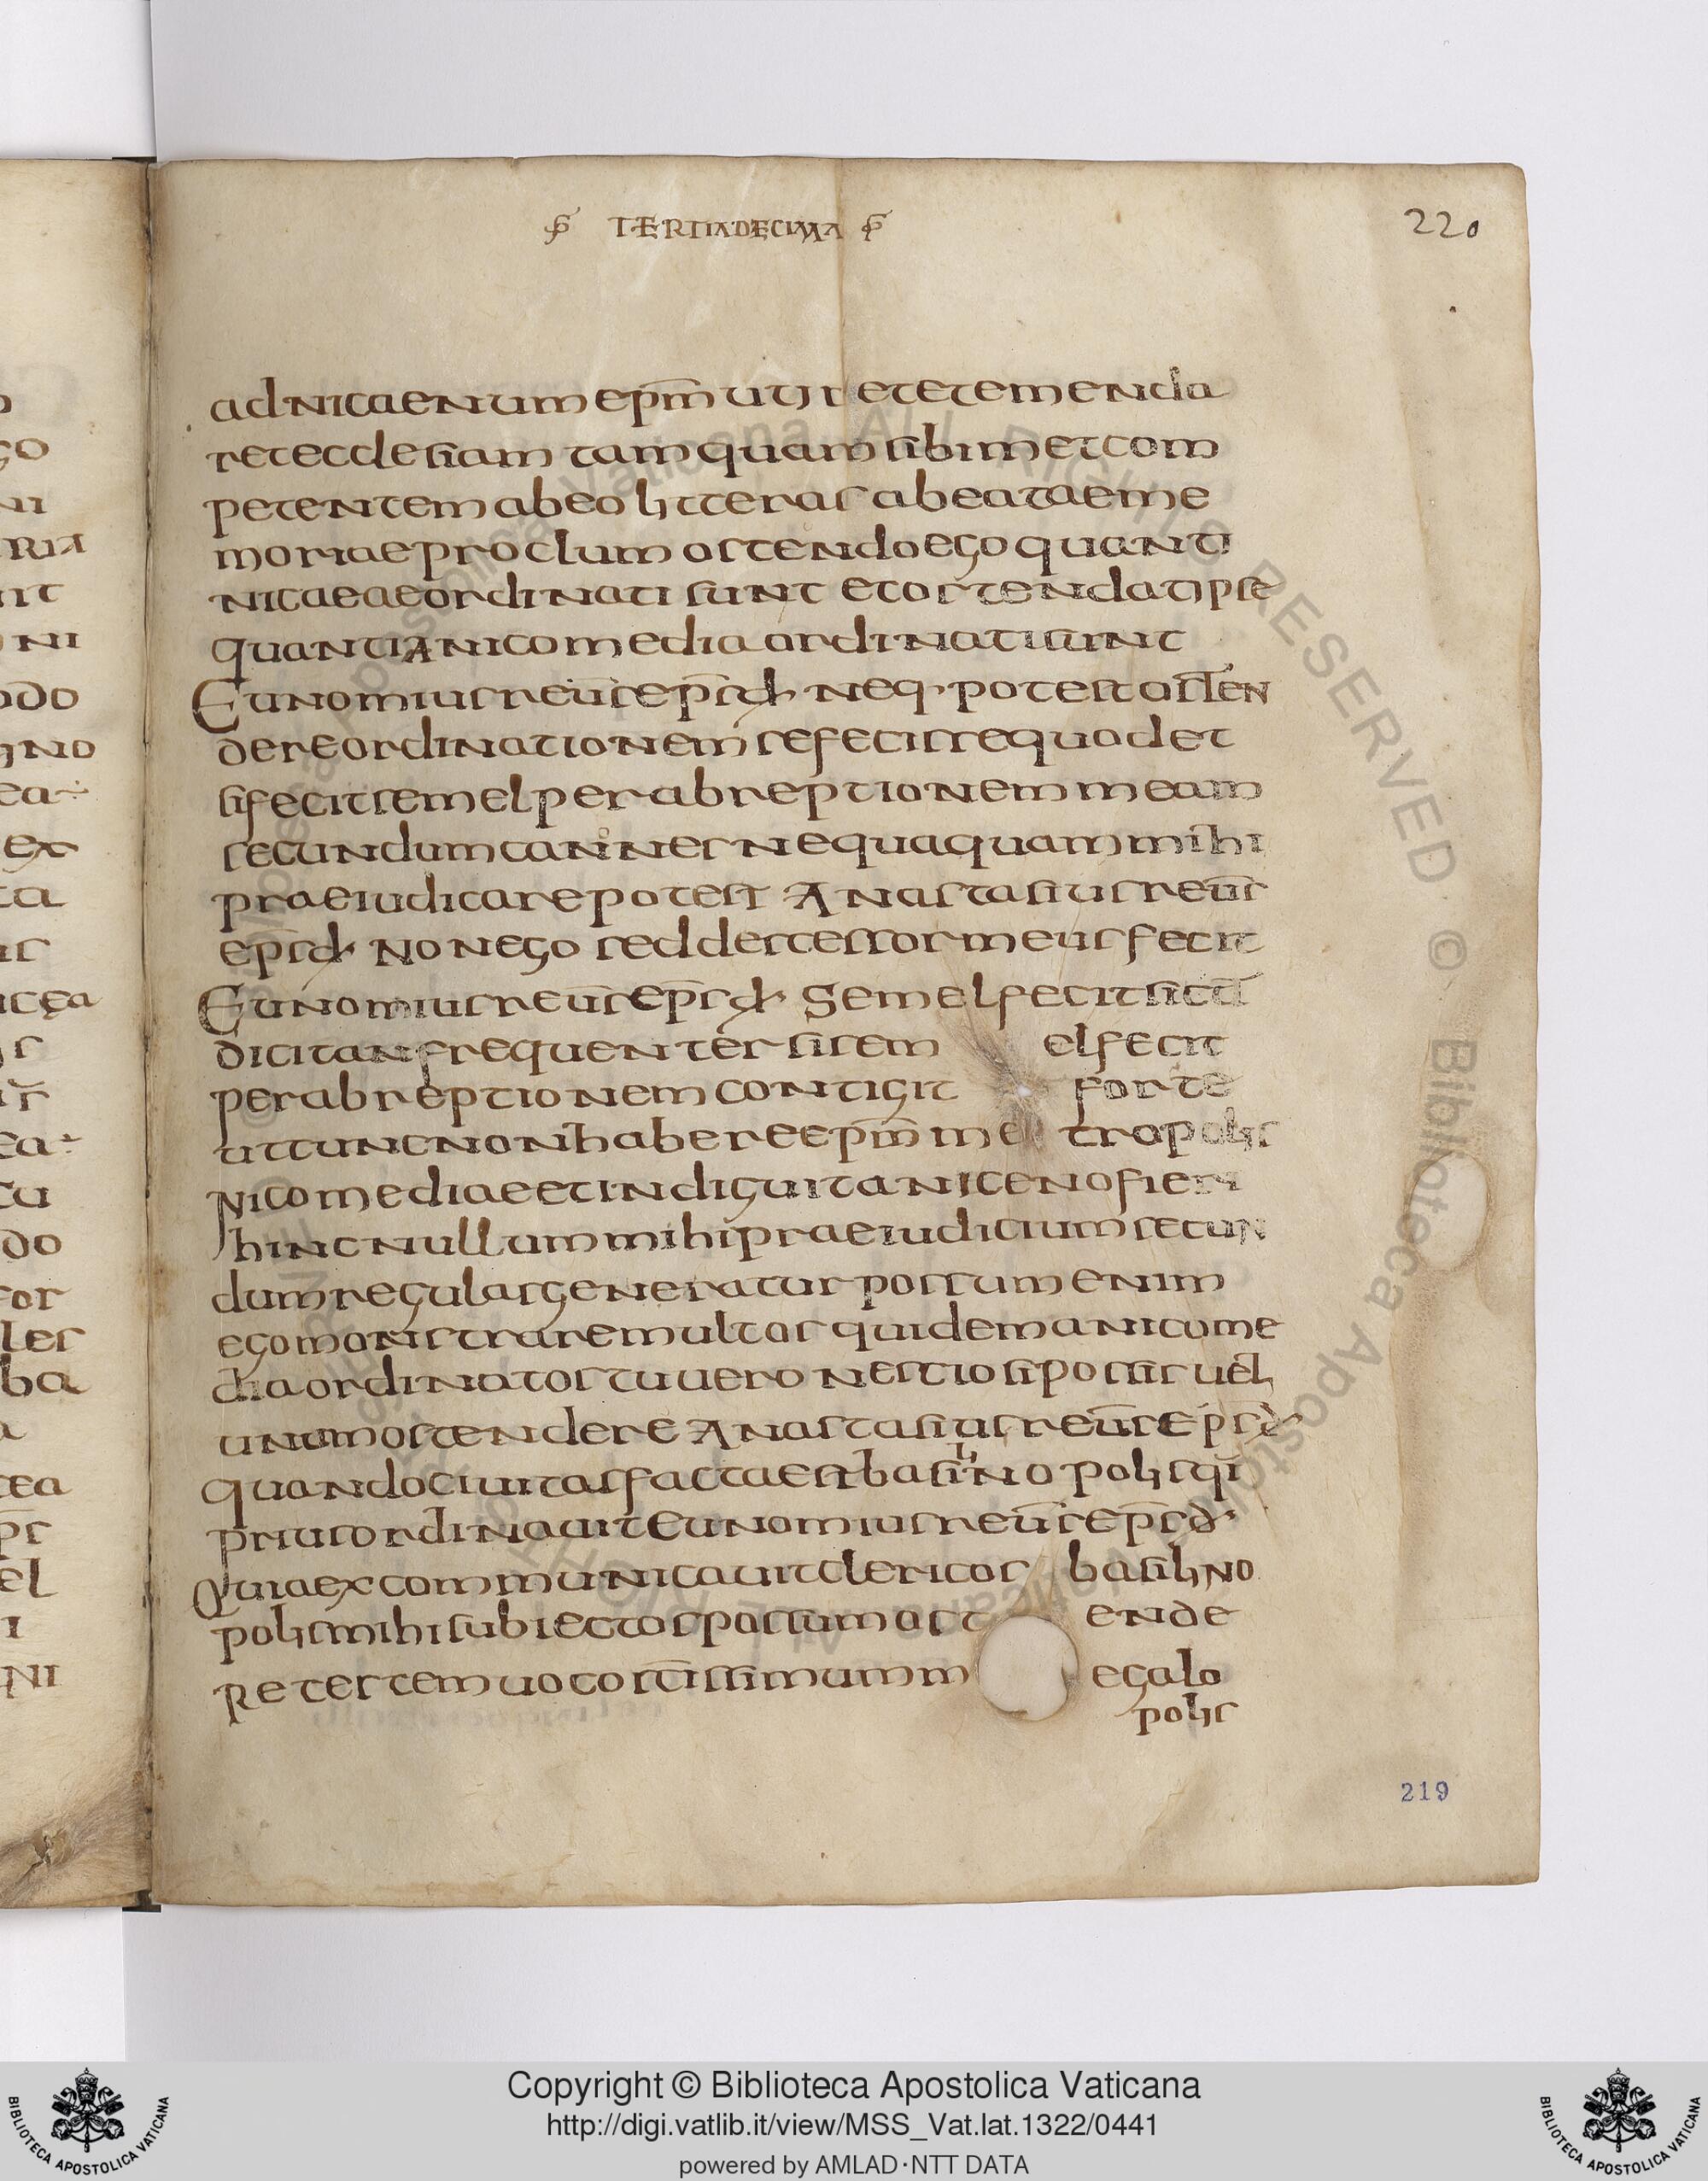 TERTIADECIMA
220
ad nicaenum ep̅m ut iret et emenda
ret ecclesiam tamquam sibimet com
petentem ab eo litteras ab eatae me
moriae proclum ostendo ego quanti
nicaeae ordinati sunt et ostendat ipse
quanti A nicomedia ordinati sunt
Eunomius reu̅s ep̅s d. neq. potest osten
dere ordinationem se fecisse quod et
si fecit semel per abreptionem meam
secundum canones nequaquam mihi
praeiudicare potest Anastasius reu̅s
ep̅s d. Non ego sed descessor meus fecit
Eunomius reu̅s ep̅s d. Semel fecit sicut
dicit an frequenter si semel fecit
per abreptionem contigit forte
ut tunc non habere ep̅m metropolis
Nicomediae et indiguit a niceno fieri
hinc nullum mihi praeiudicium secun
dum regulas generatur possum enim
ego monstrare multos quidem a nicome
dia ordinatos tu uero nescio si possis uel
unum ostendere Anastasius reu̅s ep̅s d.
quando ciuitas facta est basilinopolis q̅i
prius ordinauit Eunomius reu̅s ep̅s d.
Quia excommunicauit clericos basilino
polis mihi subiectos possum ostende
Re testem uoco sc̅issimum megalo
polis
219
Copyright © Biblioteca Apostolica Vaticana
http://digi.vatlib.it/view/MSS_Vat.lat.1322/0441
powered by AMLAD·NTT DATA